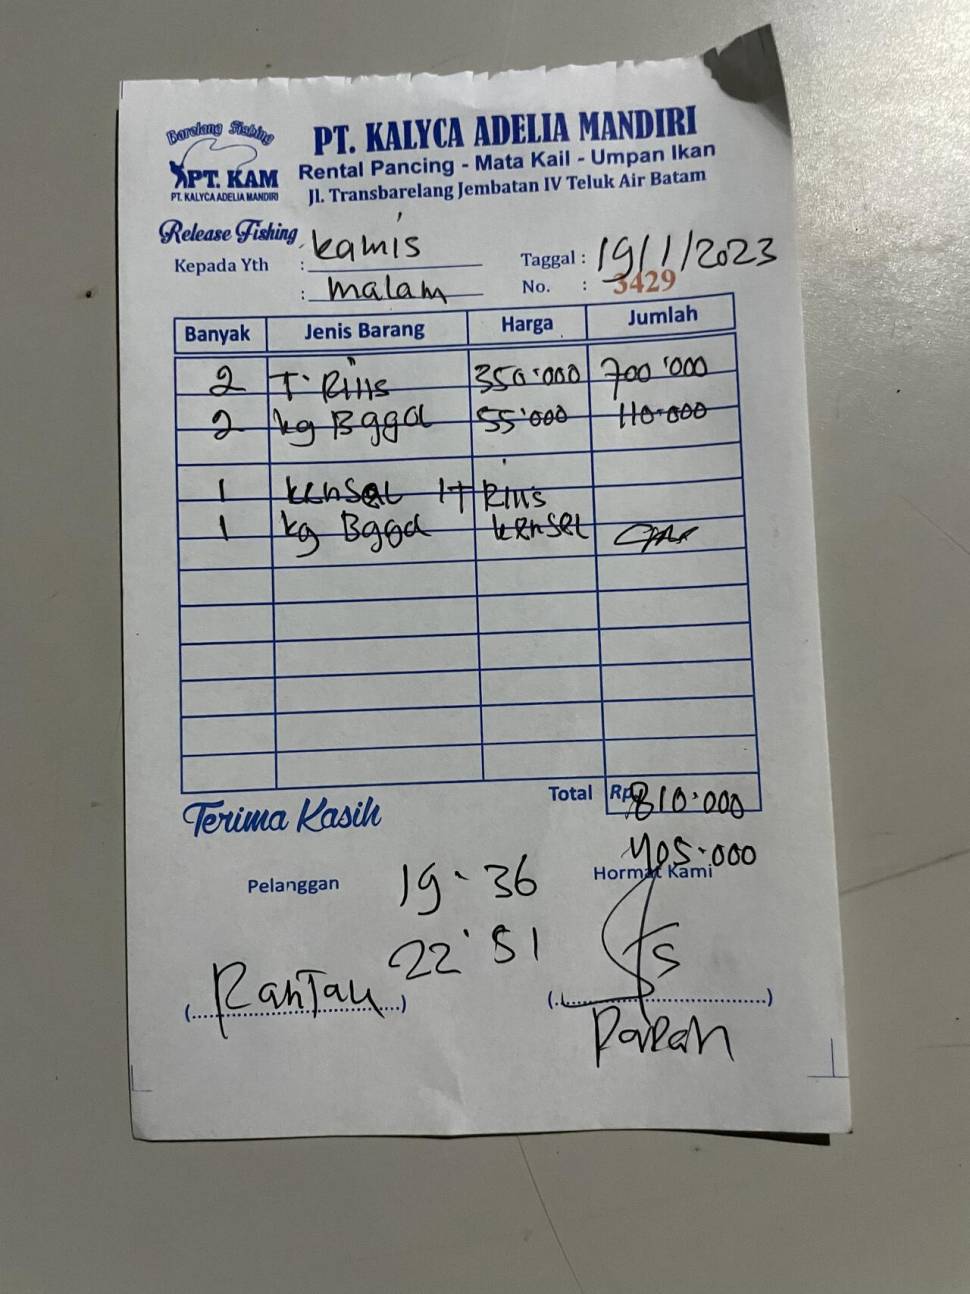 Barelang Fishing
PT. KAM
PT. KALYCA ADELIA MANDIRI
PT. KALYCA ADELIA MANDIRI
Rental Pancing - Mata Kail - Umpan Ikan
Jl. Transbarelang Jembatan IV Teluk Air Batam
Release Fishing
Kepada Yth : kamis
: malam
Taggal : 19/1/2023
No. : 3429
Banyak Jenis Barang Harga Jumlah
2 T. Riiis 350.000 700.000
2 kg Bggal 55.000 110.000
1 kensel 1T Riiis
1 kg Bggal kensel
Total Rp 810.000
405.000
Terima Kasih
Pelanggan 19.36 Hormat Kami
22.51
(Rantau) (..........)